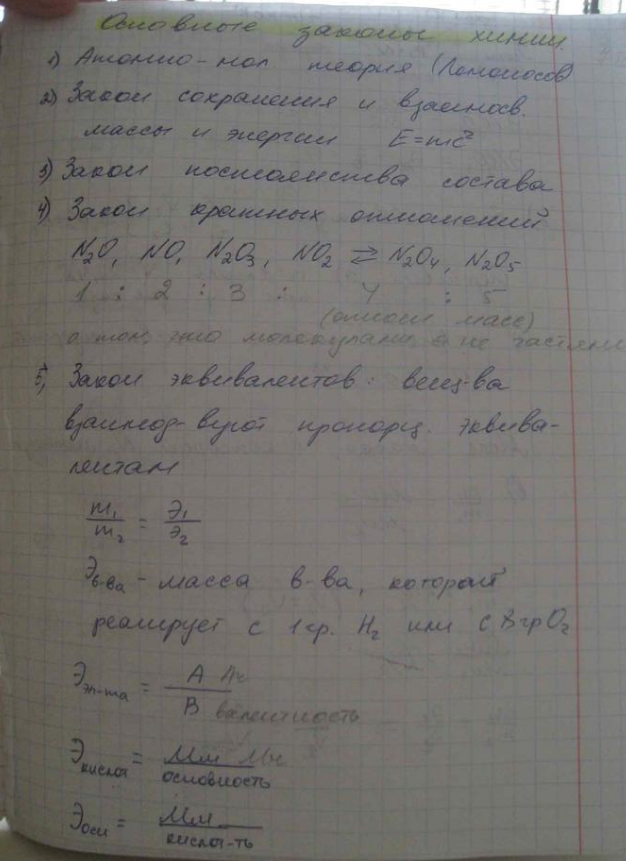 Основные законы химии.
1) Атомно-мол теория (Ломоносов)
2) Закон сохранения и взаимосв.
массы и энергии E=mc²
3) Закон постоянства состава
4) Закон кратных отношений
N₂O, NO, N₂O₃, NO₂ ⇄ N₂O₄, N₂O₅
1 : 2 : 3 : 4 : 5
(относи масс)
о том, что молекулами а не частями
5) Закон эквивалентов: вещ-ва
взаимод-вуют пропорц. эквива-
лентам
m₁/m₂ = Э₁/Э₂
Эв-ва - масса в-ва, который
реагирует с 1гр. H₂ или с 8гр O₂
Ээл-та = A Аг / В валентность
Экислот = Мм Мч / основность
Эосн = Мм / кислот-ть